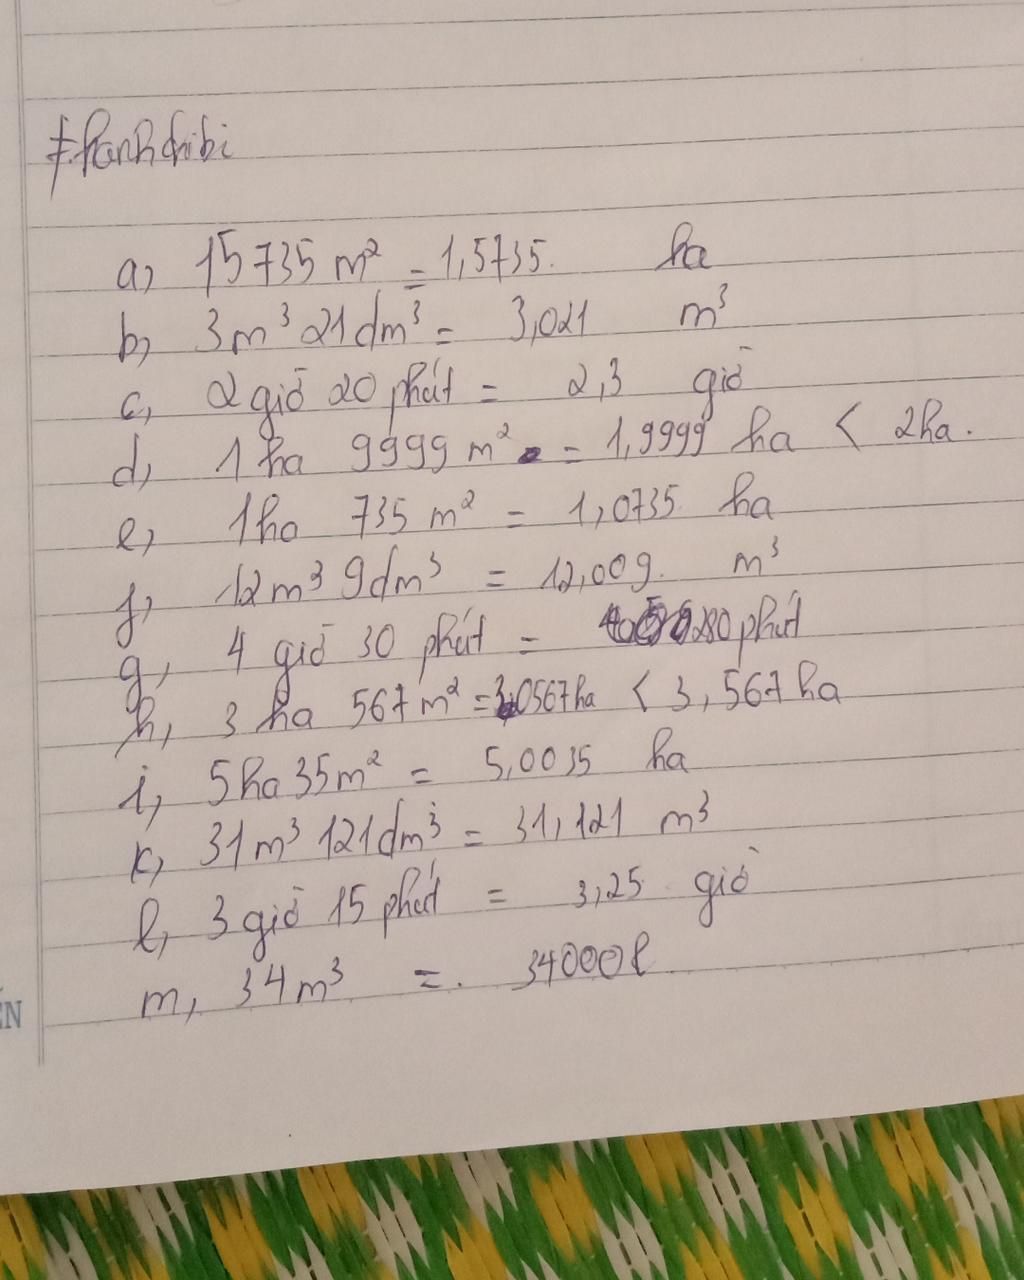 #hanhchibi
a, 15735 m² = 1,5735. ha
b, 3m³ 21dm³ = 3,021 m³
c, 2 giờ 20 phút = 2,3 giờ
d, 1 ha 9999 m² = 1,9999 ha < 2ha.
e, 1ha 735 m² = 1,0735 ha
f, 12m³ 9dm³ = 12,009. m³
g, 4 giờ 30 phút = 280 phút
h, 3 ha 567 m² = 3,0567 ha < 3,567 ha
i, 5ha 35m² = 5,0035 ha
k, 31m³ 121dm³ = 31,121 m³
l, 3 giờ 15 phút = 3,25 giờ
m, 34m³ =. 34000l